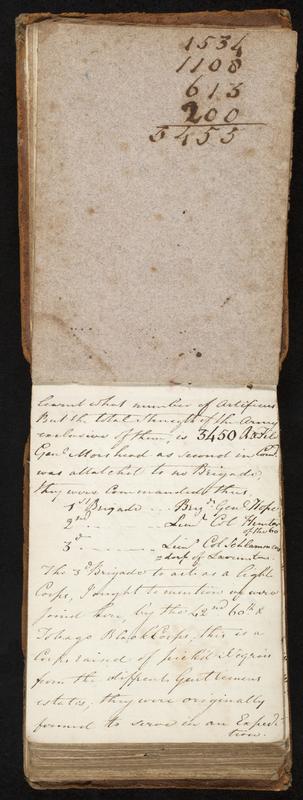 1534
1108
613
200
5455
learnt what number of Artificers
But the total strength of the Army
exclusive of them, is 3450 R & File
Genl. Morshead as second in Comd.
was attatched to no Brigade
they were Commanded thus.
1st Brigade .. Brigr. Genl. Hope
2nd .. Lieut. Col.
of the 60
3d. Lieut. Col. Schlammers
dorf of Lavenstine
The 3d. Brigade to act as a Light
Corps, I ought to mention we were
joined here, by the 42nd 60th &
Tobago Black Corps, this is a
Corps raised of pick'd Negroes
from the different Gentlemens
estates, they were originally
formed to serve in an Expedi-
tion.